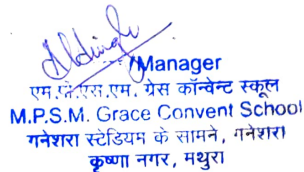 Manager
एम.पी.एस.एम. ग्रेस कॉन्वेन्ट स्कूल
M.P.S.M. Grace Convent School
गनेशरा स्टेडियम के सामने, गनेशरा
कृष्णा नगर, मथुरा